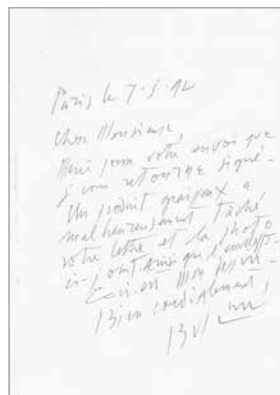 Paris le 7-5-92
Cher Monsieur,
Merci pour votre envoi que
je vous retourne signé.
Un produit graisseux a
malheureusement taché
votre lettre et la photo
ci-joint ainsi que l'enveloppe
Bien cordialement,